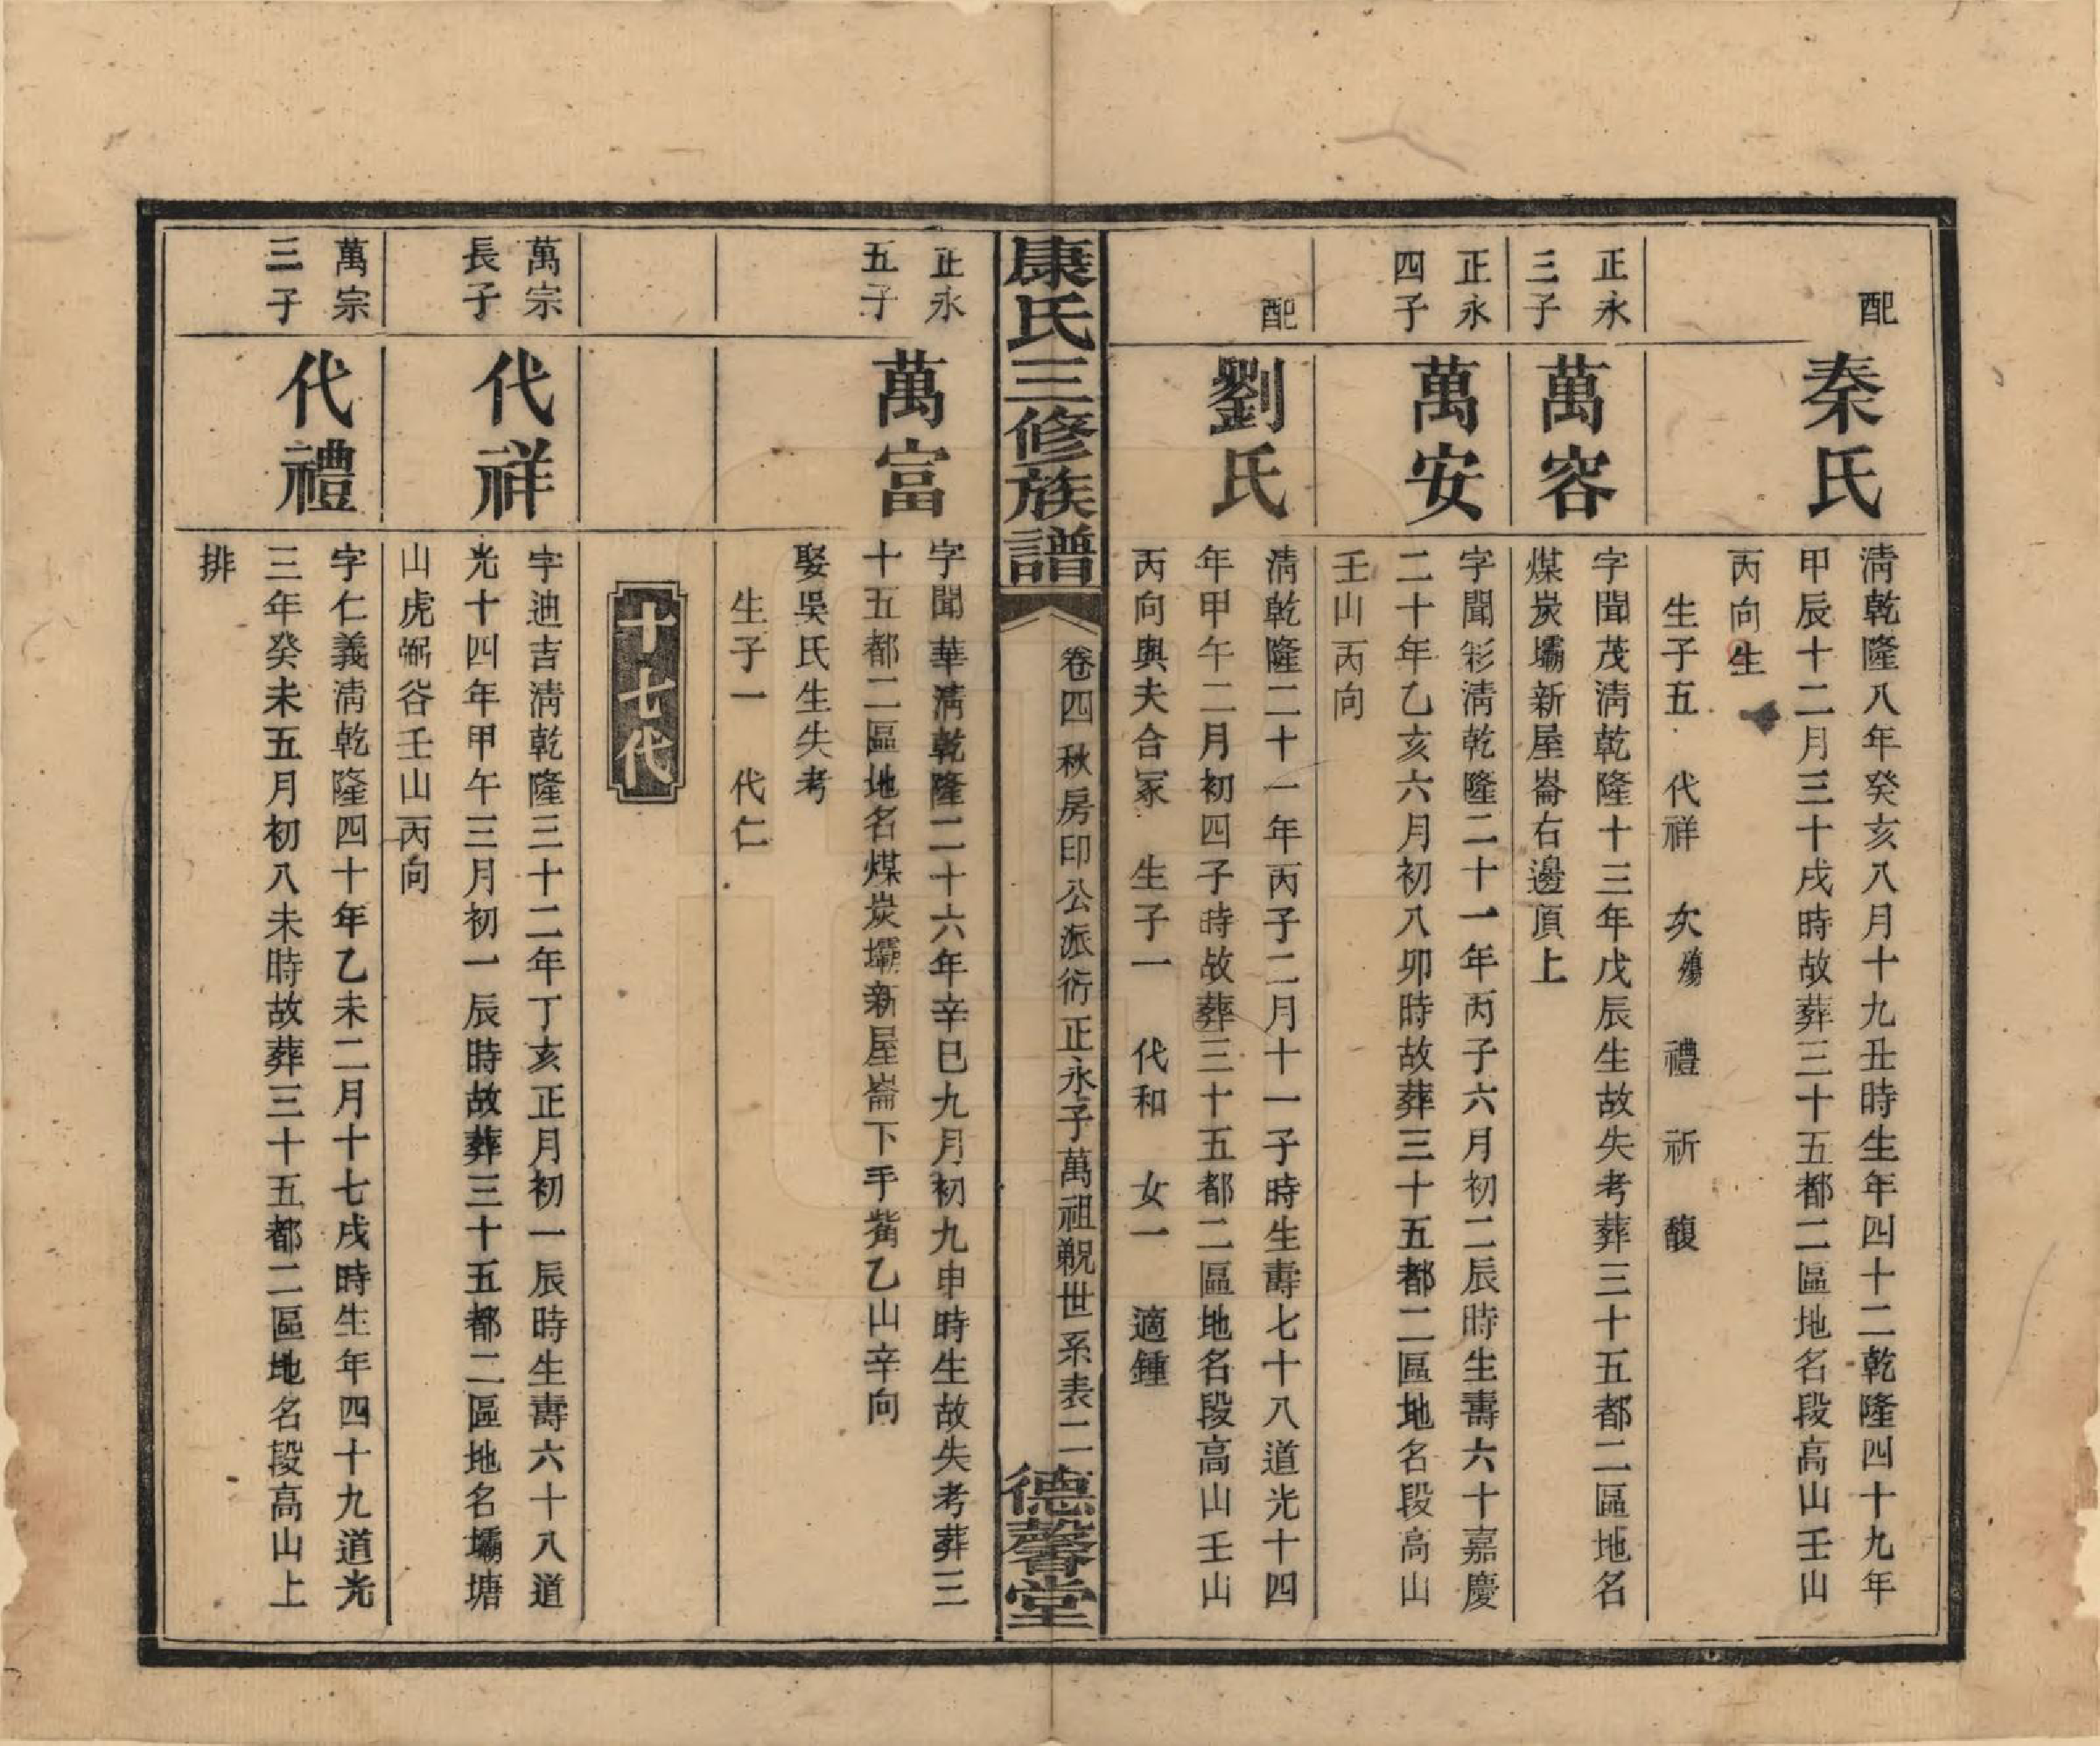 配
秦氏
淸乾隆八年癸亥八月十九丑時生年四十二乾隆四十九年
甲辰十二月三十戌時故葬三十五都二區地名段高山壬山
丙向生
生子五 代祥 次殤 禮 祈 馥
正永
三子
萬容
字聞茂淸乾隆十三年戊辰生故失考葬三十五都二區地名
煤炭壩新屋崙右邊頂上
正永
四子
萬安
字聞彩淸乾隆二十一年丙子六月初二辰時生壽六十嘉慶
二十年乙亥六月初八卯時故葬三十五都二區地名段高山
壬山丙向
配
劉氏
淸乾隆二十一年丙子二月十一子時生壽七十八道光十四
年甲午二月初四子時故葬三十五都二區地名段高山壬山
丙向與夫合冢 生子一 代和 女一 適鍾
康氏三修族譜
卷四 秋房印公派衍正永子萬祖覯世系表二
德馨堂
正永
五子
萬富
字聞華淸乾隆二十六年辛巳九月初九申時生故失考葬三
十五都二區地名煤炭壩新屋崙下手觜乙山辛向
娶吳氏生失考
生子一 代仁
十七代
萬宗
長子
代祥
字迪吉淸乾隆三十二年丁亥正月初一辰時生壽六十八道
光十四年甲午三月初一辰時故葬三十五都二區地名壩塘
山虎形谷壬山丙向
萬宗
三子
代禮
字仁義淸乾隆四十年乙未二月十七戌時生年四十九道光
三年癸未五月初八未時故葬三十五都二區地名段高山上
排